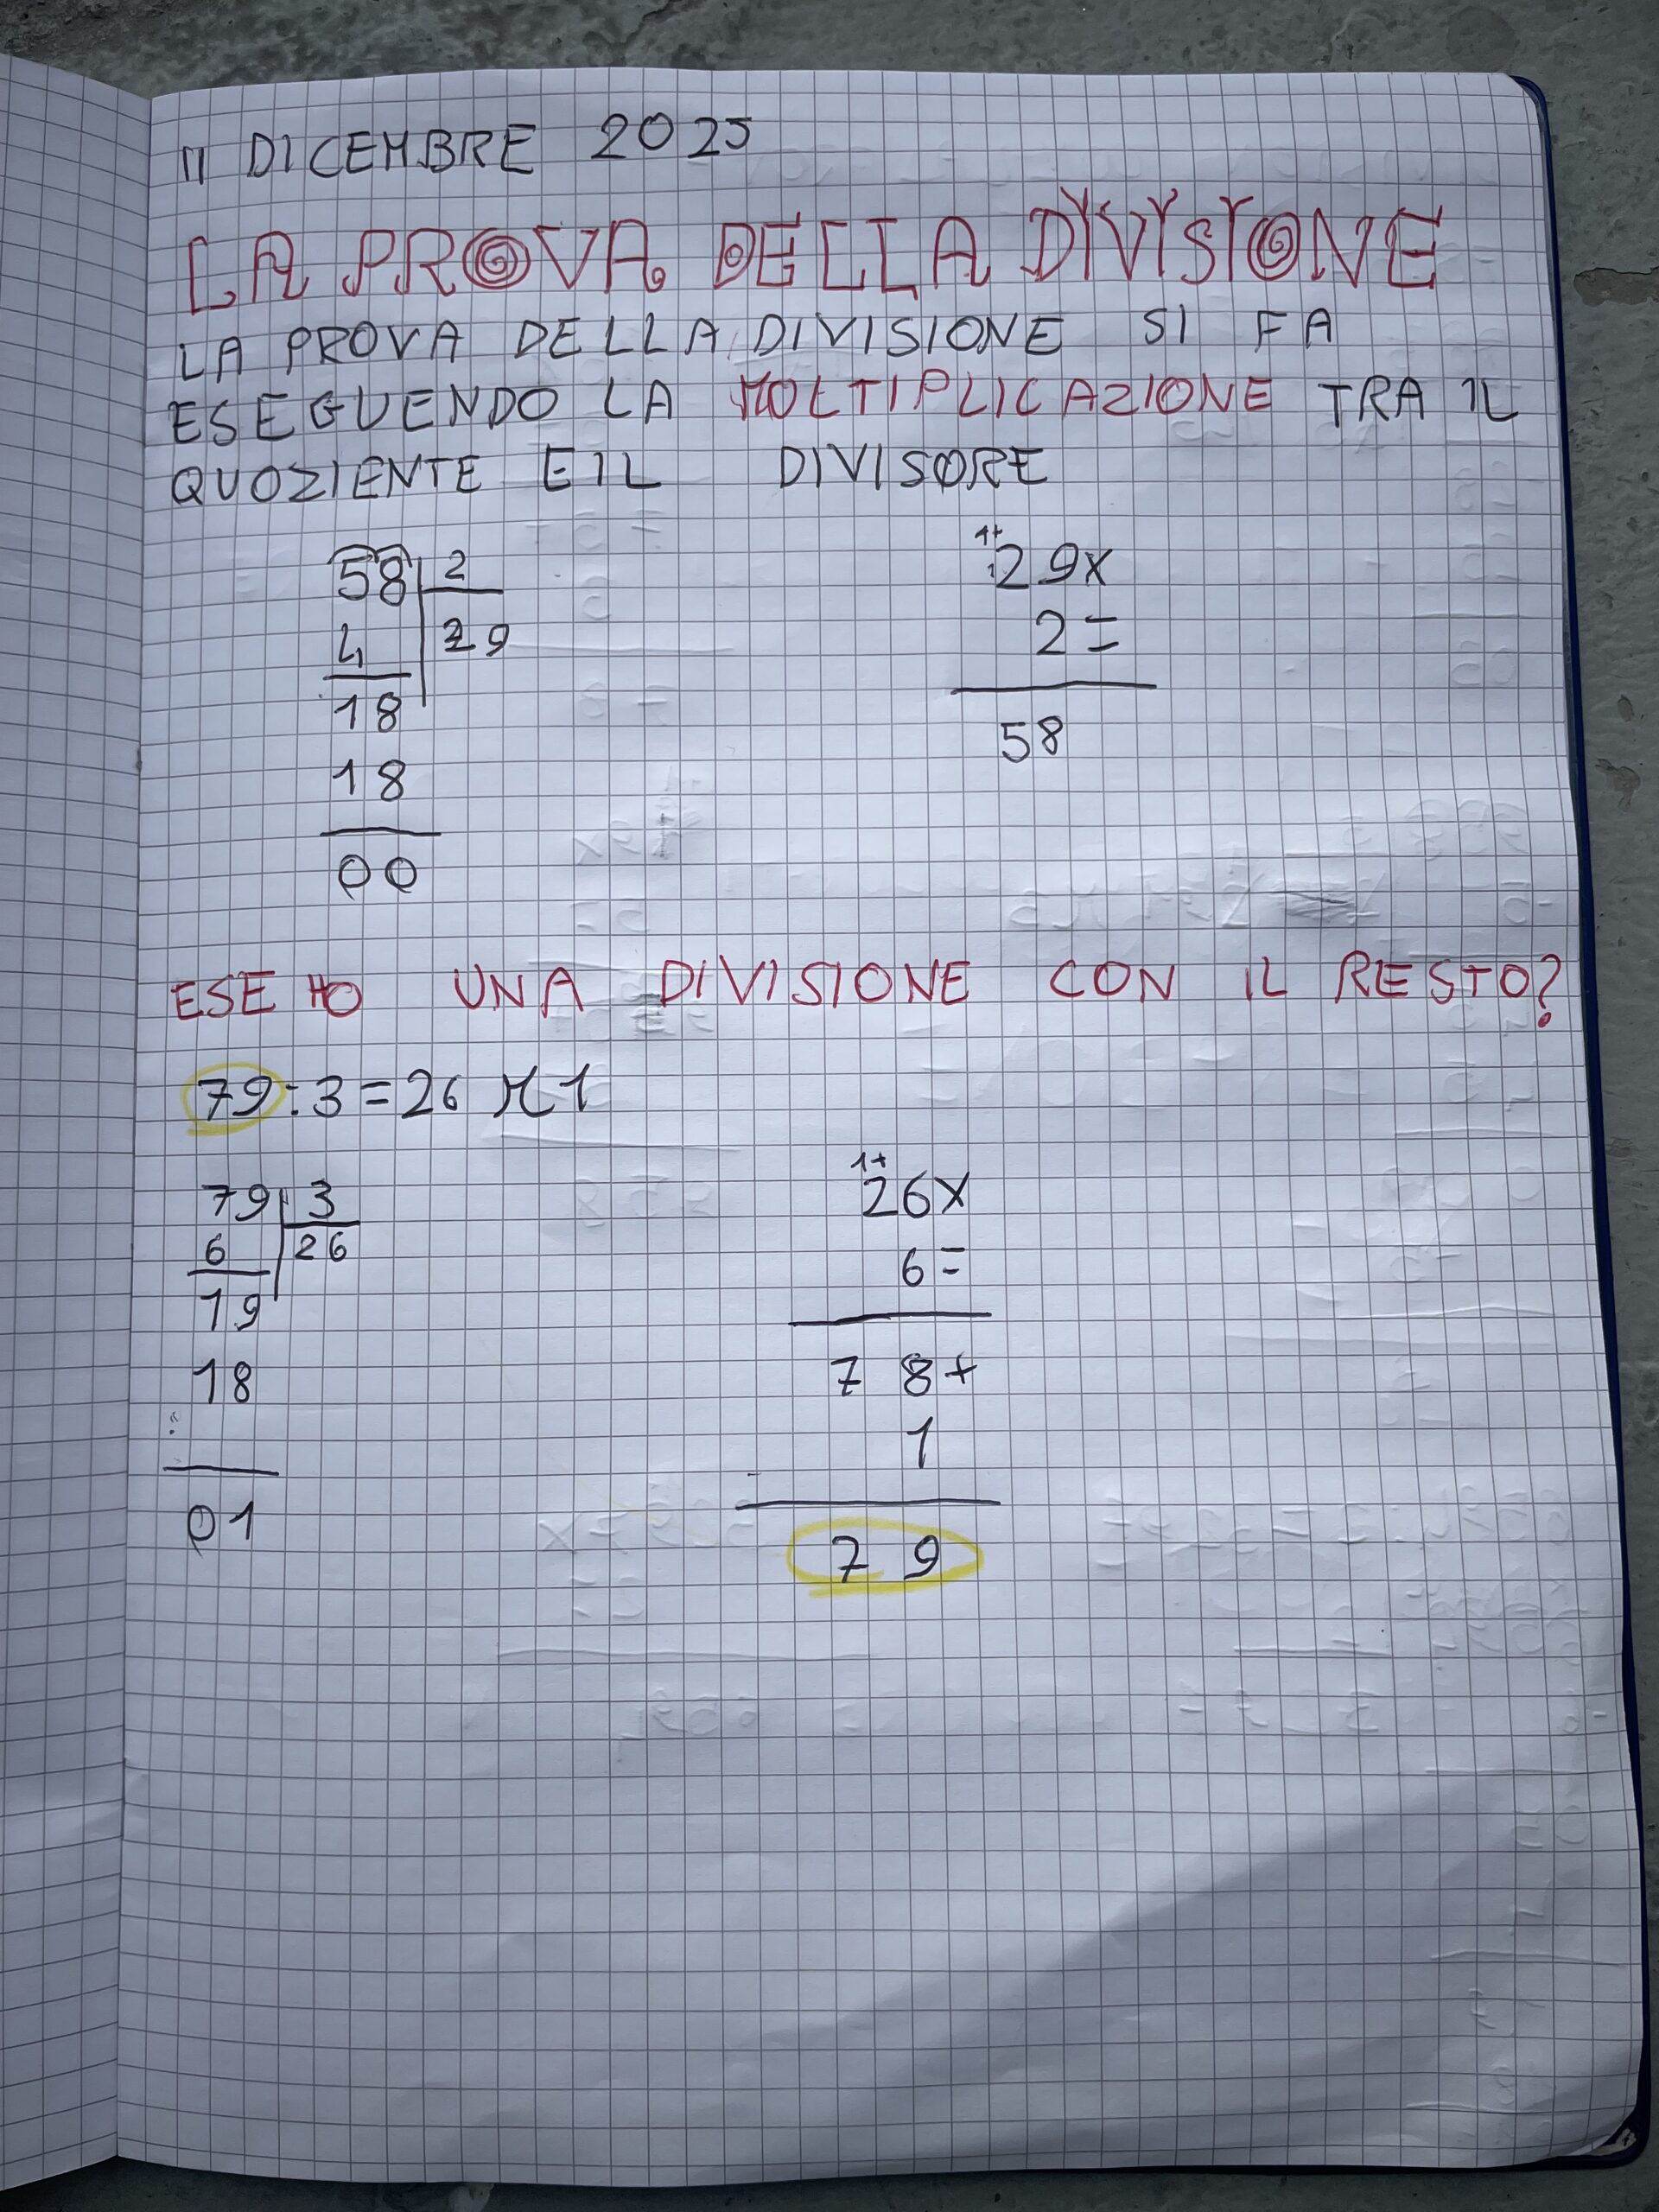 11 DICEMBRE 2025
LA PROVA DELLA DIVISIONE
LA PROVA DELLA DIVISIONE SI FA
ESEGUENDO LA MOLTIPLICAZIONE TRA IL
QUOZIENTE E IL DIVISORE
58 2
4 29
18
18
00
1+
29x
2=
58
E SE HO UNA DIVISIONE CON IL RESTO?
79:3=26 r 1
79 3
6 26
19
18
01
1+
26x
6=
78+
1
79